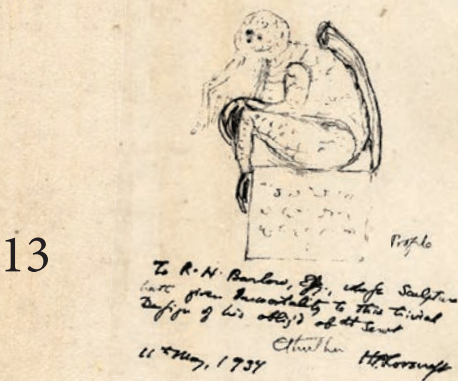 13
Profile
To R. H. Barlow, Esq., whose Sculpture
hath given Immortality to this trivial
Design of his oblig'd obt Servt
Cthulhu HPLovecraft
11th May, 1934